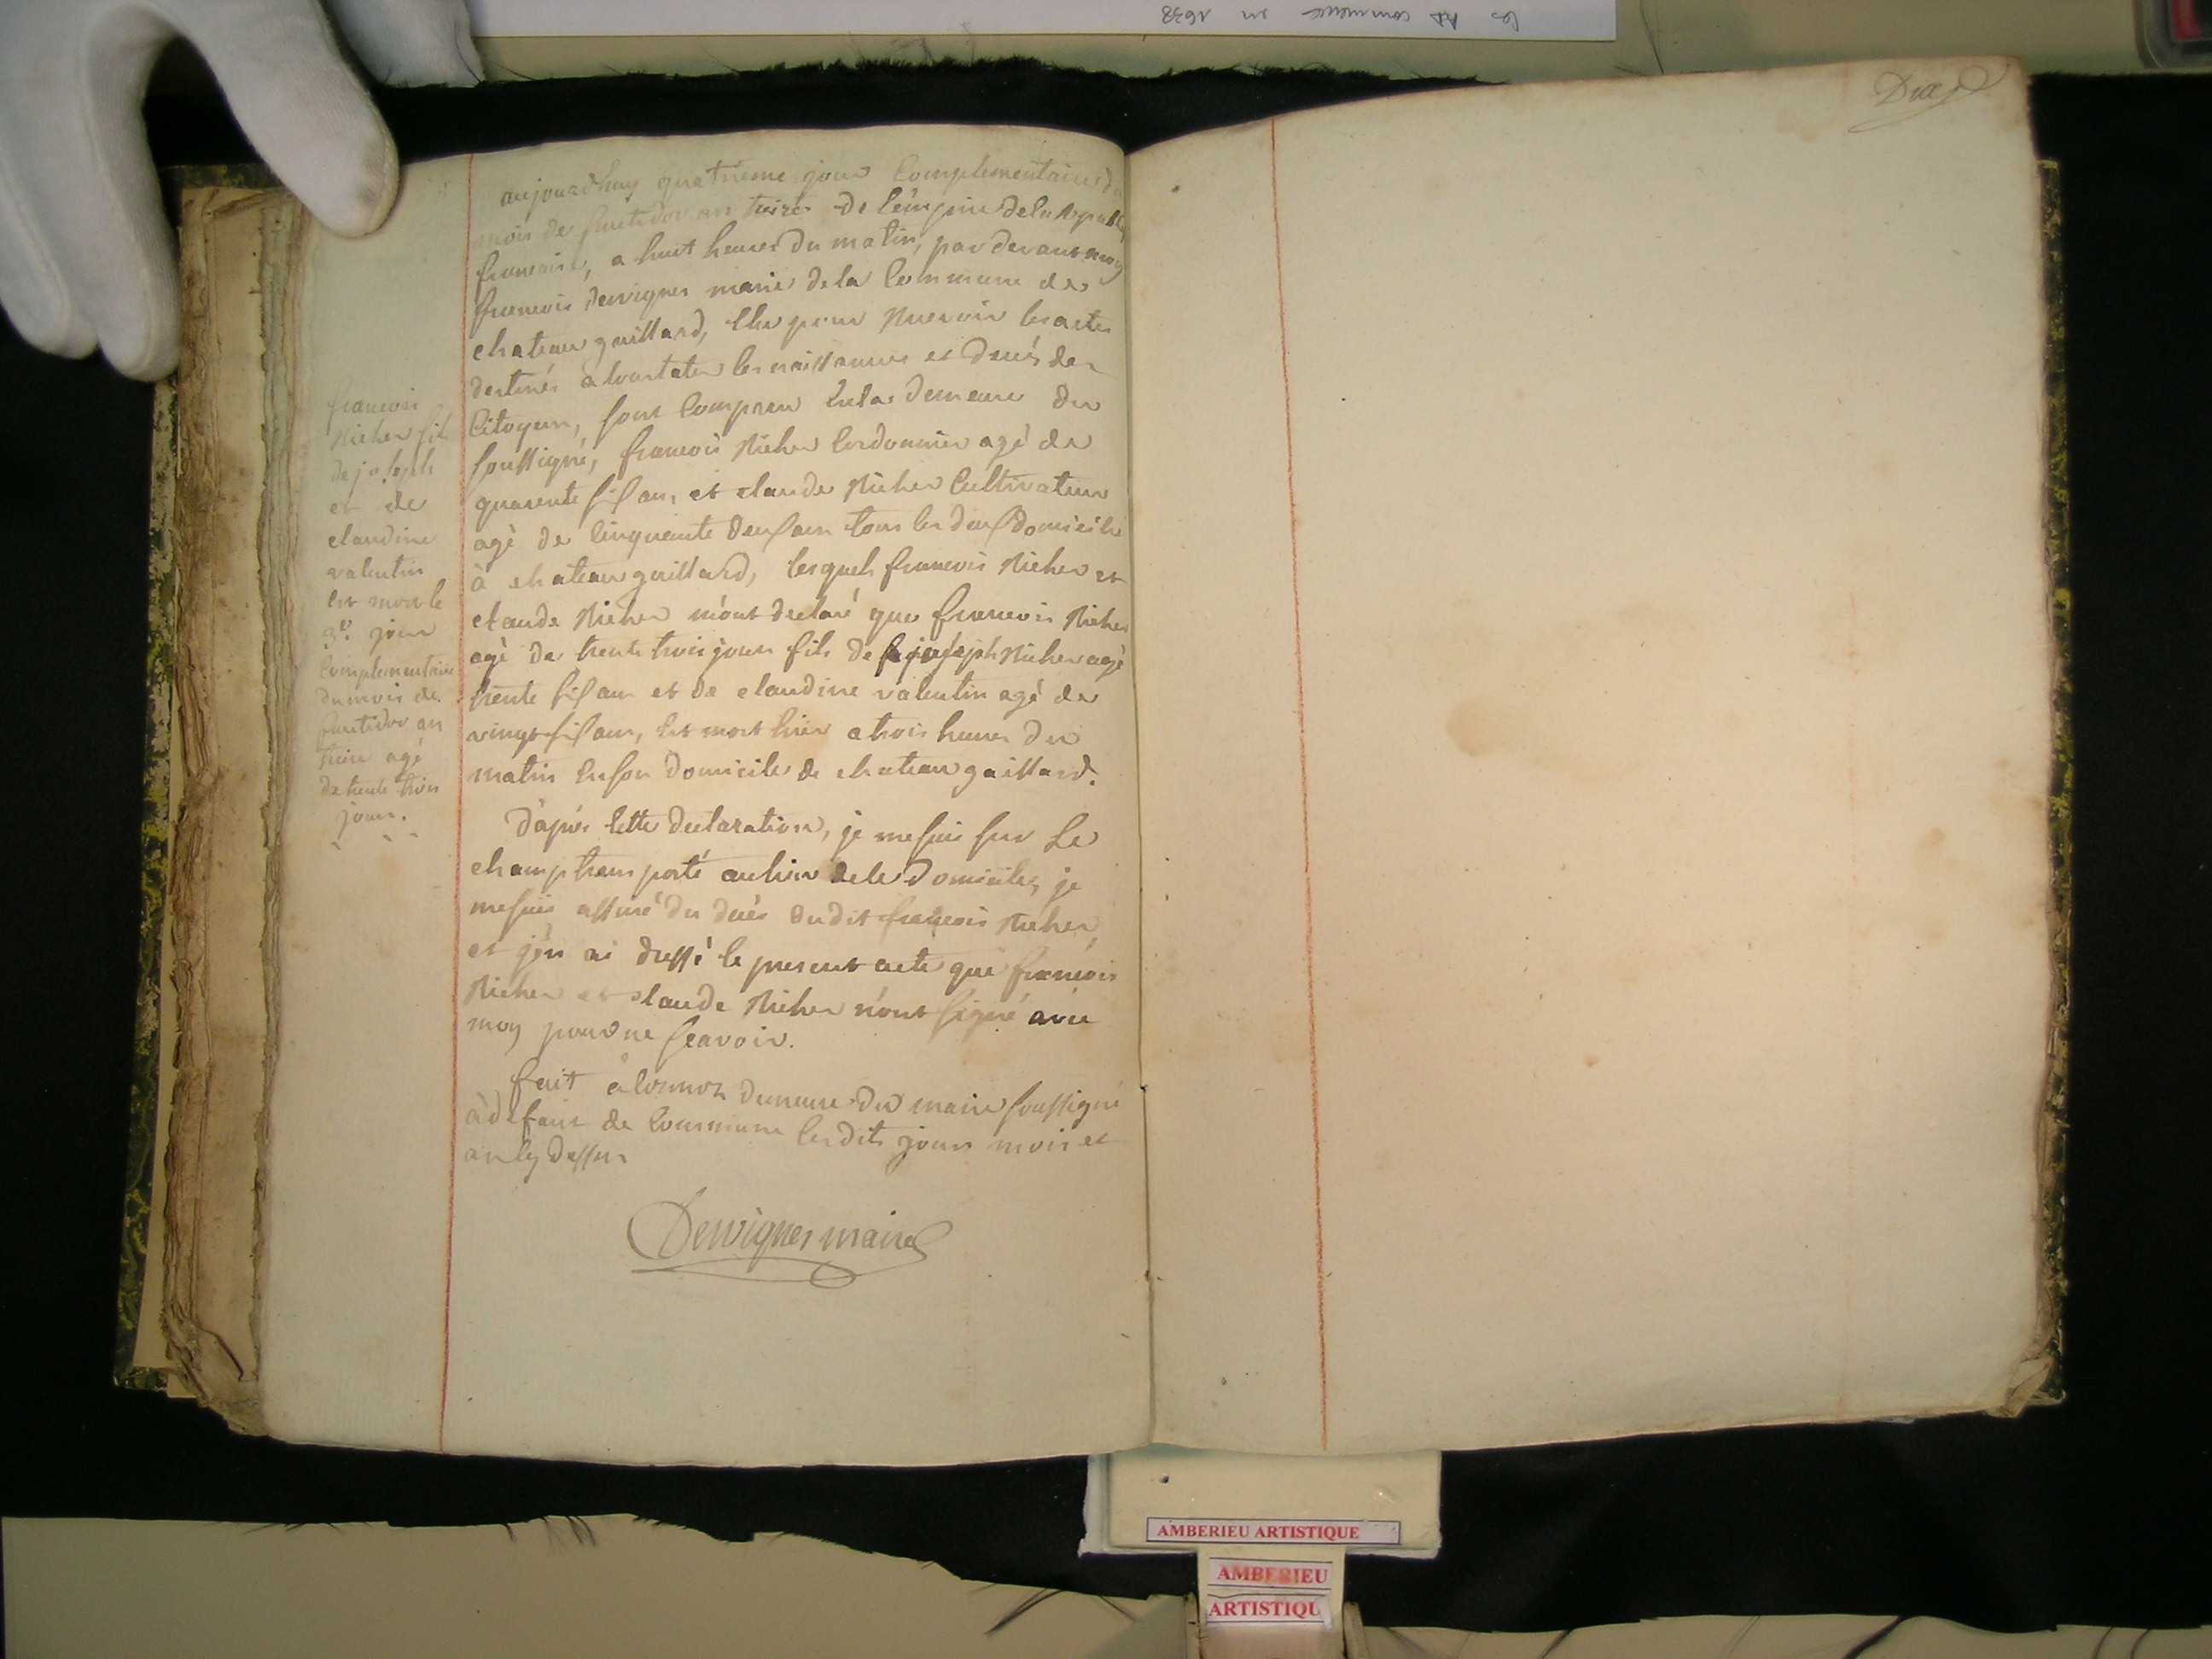 les AD commence en 1638
Dix
aujourdhuy quatrieme jour Complementaires du
mois de fructidor an treize de l'empire de la Republ
francaise, a huit heures du matin, par devant moy
francois Dervignes maire de la Commune de
chateau gaillard, Elu pour Recevoir les actes
destinés a Constater les naissances et decés des
Citoyens, sont Comparu En la demeure du
soussigné, francois Richer Cordonnier agé de
quarente six ans, et claude Richer Cultivateur
agé de Cinquante deux ans tous les deux domicilié
à chateau gaillard, lesquels francois Richer et
claude Richer m'ont declaré que francois Richer
agé de trente trois jours fils de joseph Richer agé
trente six ans et de claudine valentin agé de
vingt six ans, Est mort hier a trois heures du
matin En son domicile de chateau gaillard.
D'aprés Cette declaration, je me suis sur Le
champ transporté au lieu de le Domicile, je
me suis assuré du decés dudit francois Richer,
et j'en ai dressé le present acte que francois
Richer et claude Richer n'ont signé avec
moy pour ne scavoir.
fait à Cormoz demeure du maire soussigné
à defaut de Commune lesdits jours mois et
an Cy dessus
Dervignes maire
francois
Richer fils
de joseph
et de
claudine
valentin
Est mort le
3e. jour
Complementaire
du mois de
fructidor an
treize agé
de trente trois
jours.
AMBERIEU ARTISTIQUE
AMBERIEU
ARTISTIQU